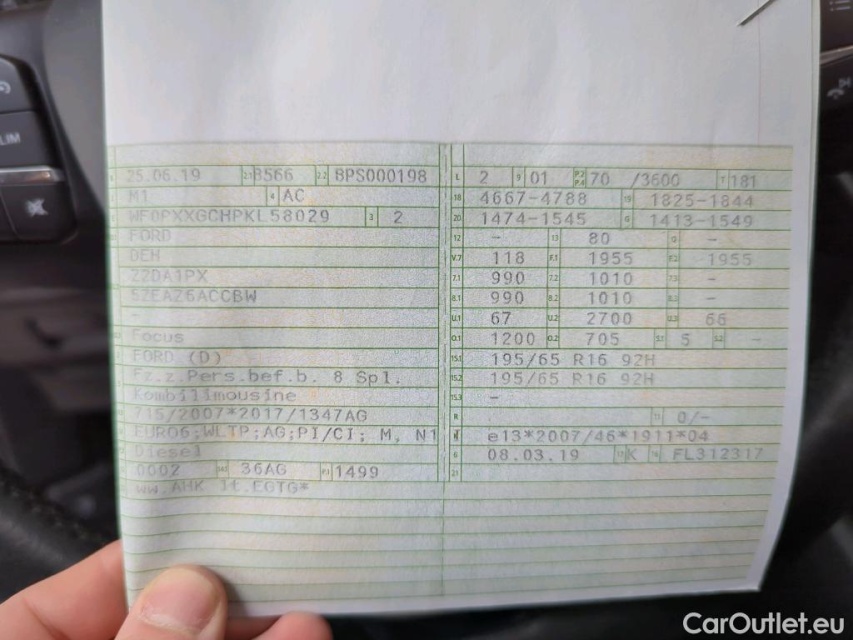 LIM
25.06.19 2.1 8566 2.2 BPS000198
M1 4 AC
WF0PXXGCHPKL58029 3 2
FORD
DEH
ZZDA1PX
5ZEAZ6ACCBW
-
Focus
FORD (D)
Fz.z.Pers.bef.b. 8 Spl.
Kombilimousine
715/2007*2017/1347AG
EURO6;WLTP;AG;PI/CI; M, N1
Diesel
0002 36AG P.1 1499
ww.AHK lt.EGTG*
L 2 9 01 P.2 P.4 70 /3600 T 181
18 4667-4788 19 1825-1844
20 1474-1545 G 1413-1549
12 - 13 80 Q -
V.7 118 F.1 1955 F.2 1955
7.1 990 7.2 1010 7.3 -
8.1 990 8.2 1010 8.3 -
U.1 67 U.2 2700 U.3 66
O.1 1200 O.2 705 S.1 5 S.2 -
15.1 195/65 R16 92H
15.2 195/65 R16 92H
15.3 -
R 11 0/-
K e13*2007/46*1911*04
6 08.03.19 17 K 16 FL312317
21
CarOutlet.eu